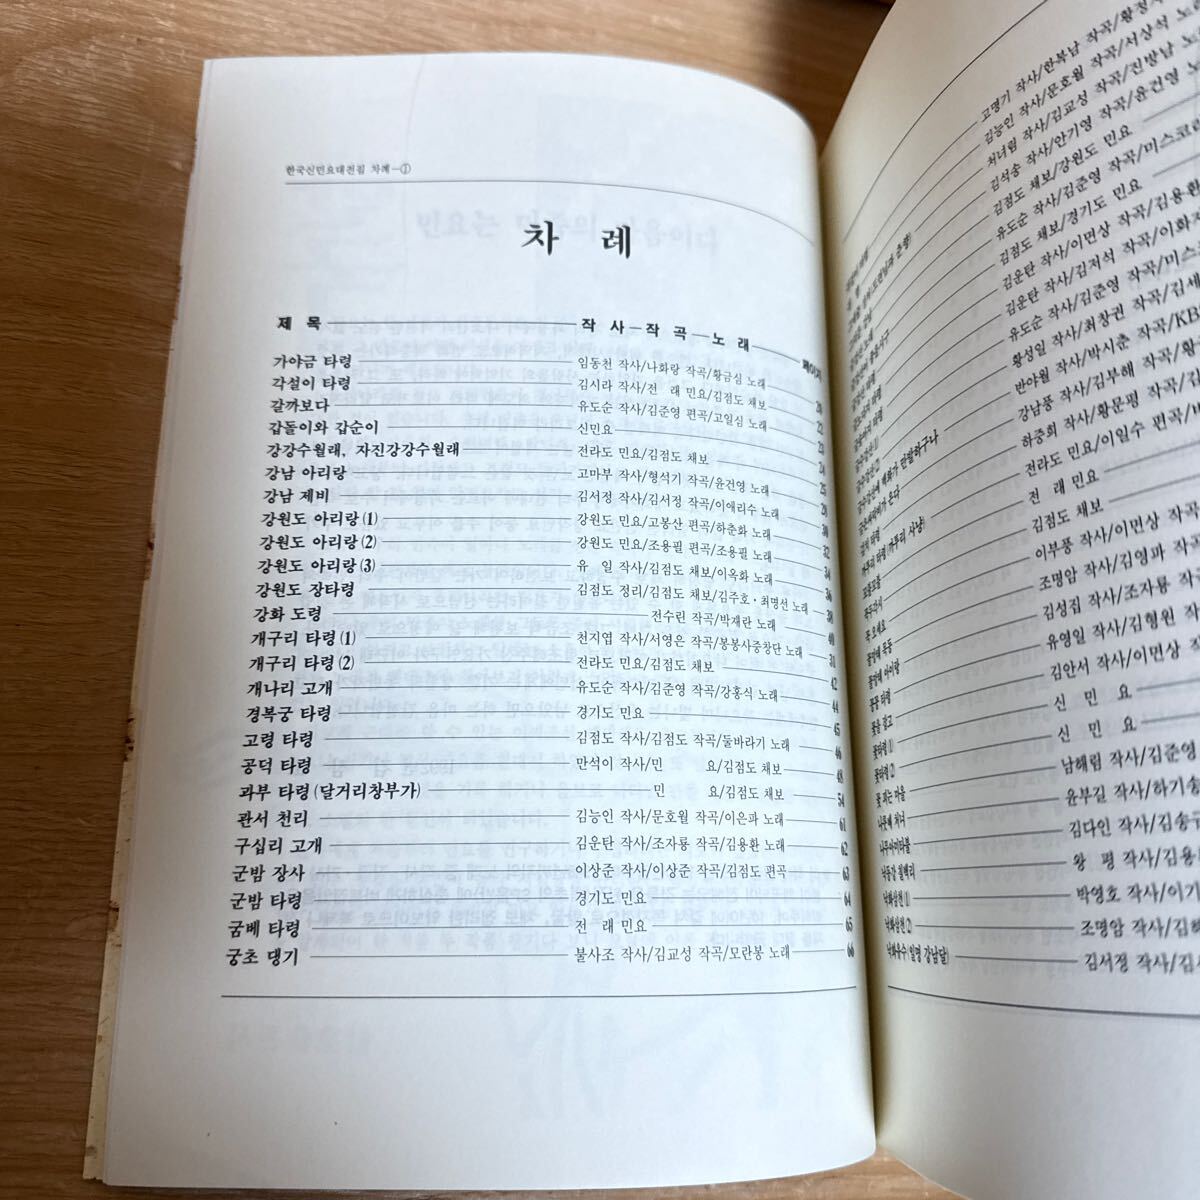 한국신민요대전집 차례—①
차 례
제 목 작 사—작 곡—노 래 페이지
가야금 타령 임동천 작사/나화랑 작곡/황금심 노래 20
각설이 타령 김시라 작사/전 래 민요/김점도 채보 22
갈까보다 유도순 작사/김준영 편곡/고일심 노래 23
갑돌이와 갑순이 신민요 24
강강수월래, 자진강강수월래 전라도 민요/김점도 채보 25
강남 아리랑 고마부 작사/형석기 작곡/윤건영 노래 29
강남 제비 김서정 작사/김서정 작곡/이애리수 노래 30
강원도 아리랑(1) 강원도 민요/고봉산 편곡/하춘화 노래 32
강원도 아리랑(2) 강원도 민요/조용필 편곡/조용필 노래 34
강원도 아리랑(3) 유 일 작사/김점도 채보/이옥화 노래 36
강원도 장타령 김점도 정리/김점도 채보/김주호·최명선 노래 39
강화 도령 전수린 작곡/박재란 노래 40
개구리 타령(1) 천지엽 작사/서영은 작곡/봉봉사중창단 노래 31
개구리 타령(2) 전라도 민요/김점도 채보 42
개나리 고개 유도순 작사/김준영 작곡/강홍식 노래 44
경복궁 타령 경기도 민요 45
고령 타령 김점도 작사/김점도 작곡/둘바라기 노래 46
공덕 타령 만석이 작사/민 요/김점도 채보 48
과부 타령(달거리창부가) 민 요/김점도 채보 54
관서 천리 김능인 작사/문호월 작곡/이은파 노래 61
구십리 고개 김운탄 작사/조자룡 작곡/김용환 노래 62
군밤 장사 이상준 작사/이상준 작곡/김점도 편곡 63
군밤 타령 경기도 민요 64
굼베 타령 전 래 민요 65
궁초 댕기 불사조 작사/김교성 작곡/모란봉 노래 66
고명기 작사/한복남 작곡/황정자
김능인 작사/문호월 작곡/서상석 노
처녀림 작사/김교성 작곡/진방남 노
김석송 작사/안기영 작곡/윤건영
김점도 채보/강원도 민요
유도순 작사/김준영 작곡/미스코리
김점도 채보/경기도 민요
김운탄 작사/이면상 작곡/김용환
김운탄 작사/김저석 작곡/이화
유도순 작사/김준영 작곡/미스
황성일 작사/최창권 작곡/김세
반야월 작사/박시춘 작곡/KB
강남풍 작사/김부해 작곡/황
하중희 작사/황문평 작곡/김
전라도 민요/이일수 편곡/
전 래 민요
김점도 채보
이부풍 작사/이면상 작곡
꼭 오세요 조명암 작사/김영파 작곡
김성집 작사/조자룡 작
유영일 작사/김형원 작
꽃을 잡고 김안서 작사/이면상
꽃타령① 신 민 요
꽃타령② 신 민 요
꽃 피는 마을 남해림 작사/김준영
윤부길 작사/하기송
김다인 작사/김송규
낙동강 칠백리 왕 평 작사/김용
낙화삼천① 박영호 작사/이기
낙화삼천② 조명암 작사/김해
낙화유수(일명 강남달) 김서정 작사/김